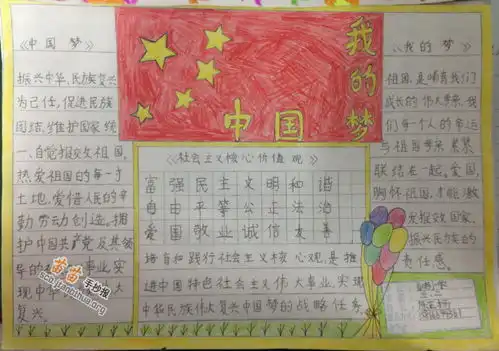 《中国梦》
振兴中华、民族复兴
为己任，促进民族
团结，维护国家统
一、自觉报效祖国。
热爱祖国的每一寸
土地，爱惜人民的辛
勤劳动创造。拥
护中国共产党及其领
事业，实
复兴。
中国
我的梦
《社会主义核心价值观》
富强民主文明和谐
自由平等公正法治
爱国敬业诚信友善
培育和践行社会主义核心观，是推
进中国特色社会主义伟大事业、实现
中华民族伟大复兴中国梦的战略任务
《我的梦》
祖国，是哺育我们
成长的伟大母亲，我
们每一个人的命运
与祖国母亲紧紧
联结在一起。爱国，
胸怀祖国，才能激
发报效国家、
振兴民族的
责任感。
苗苗手抄报